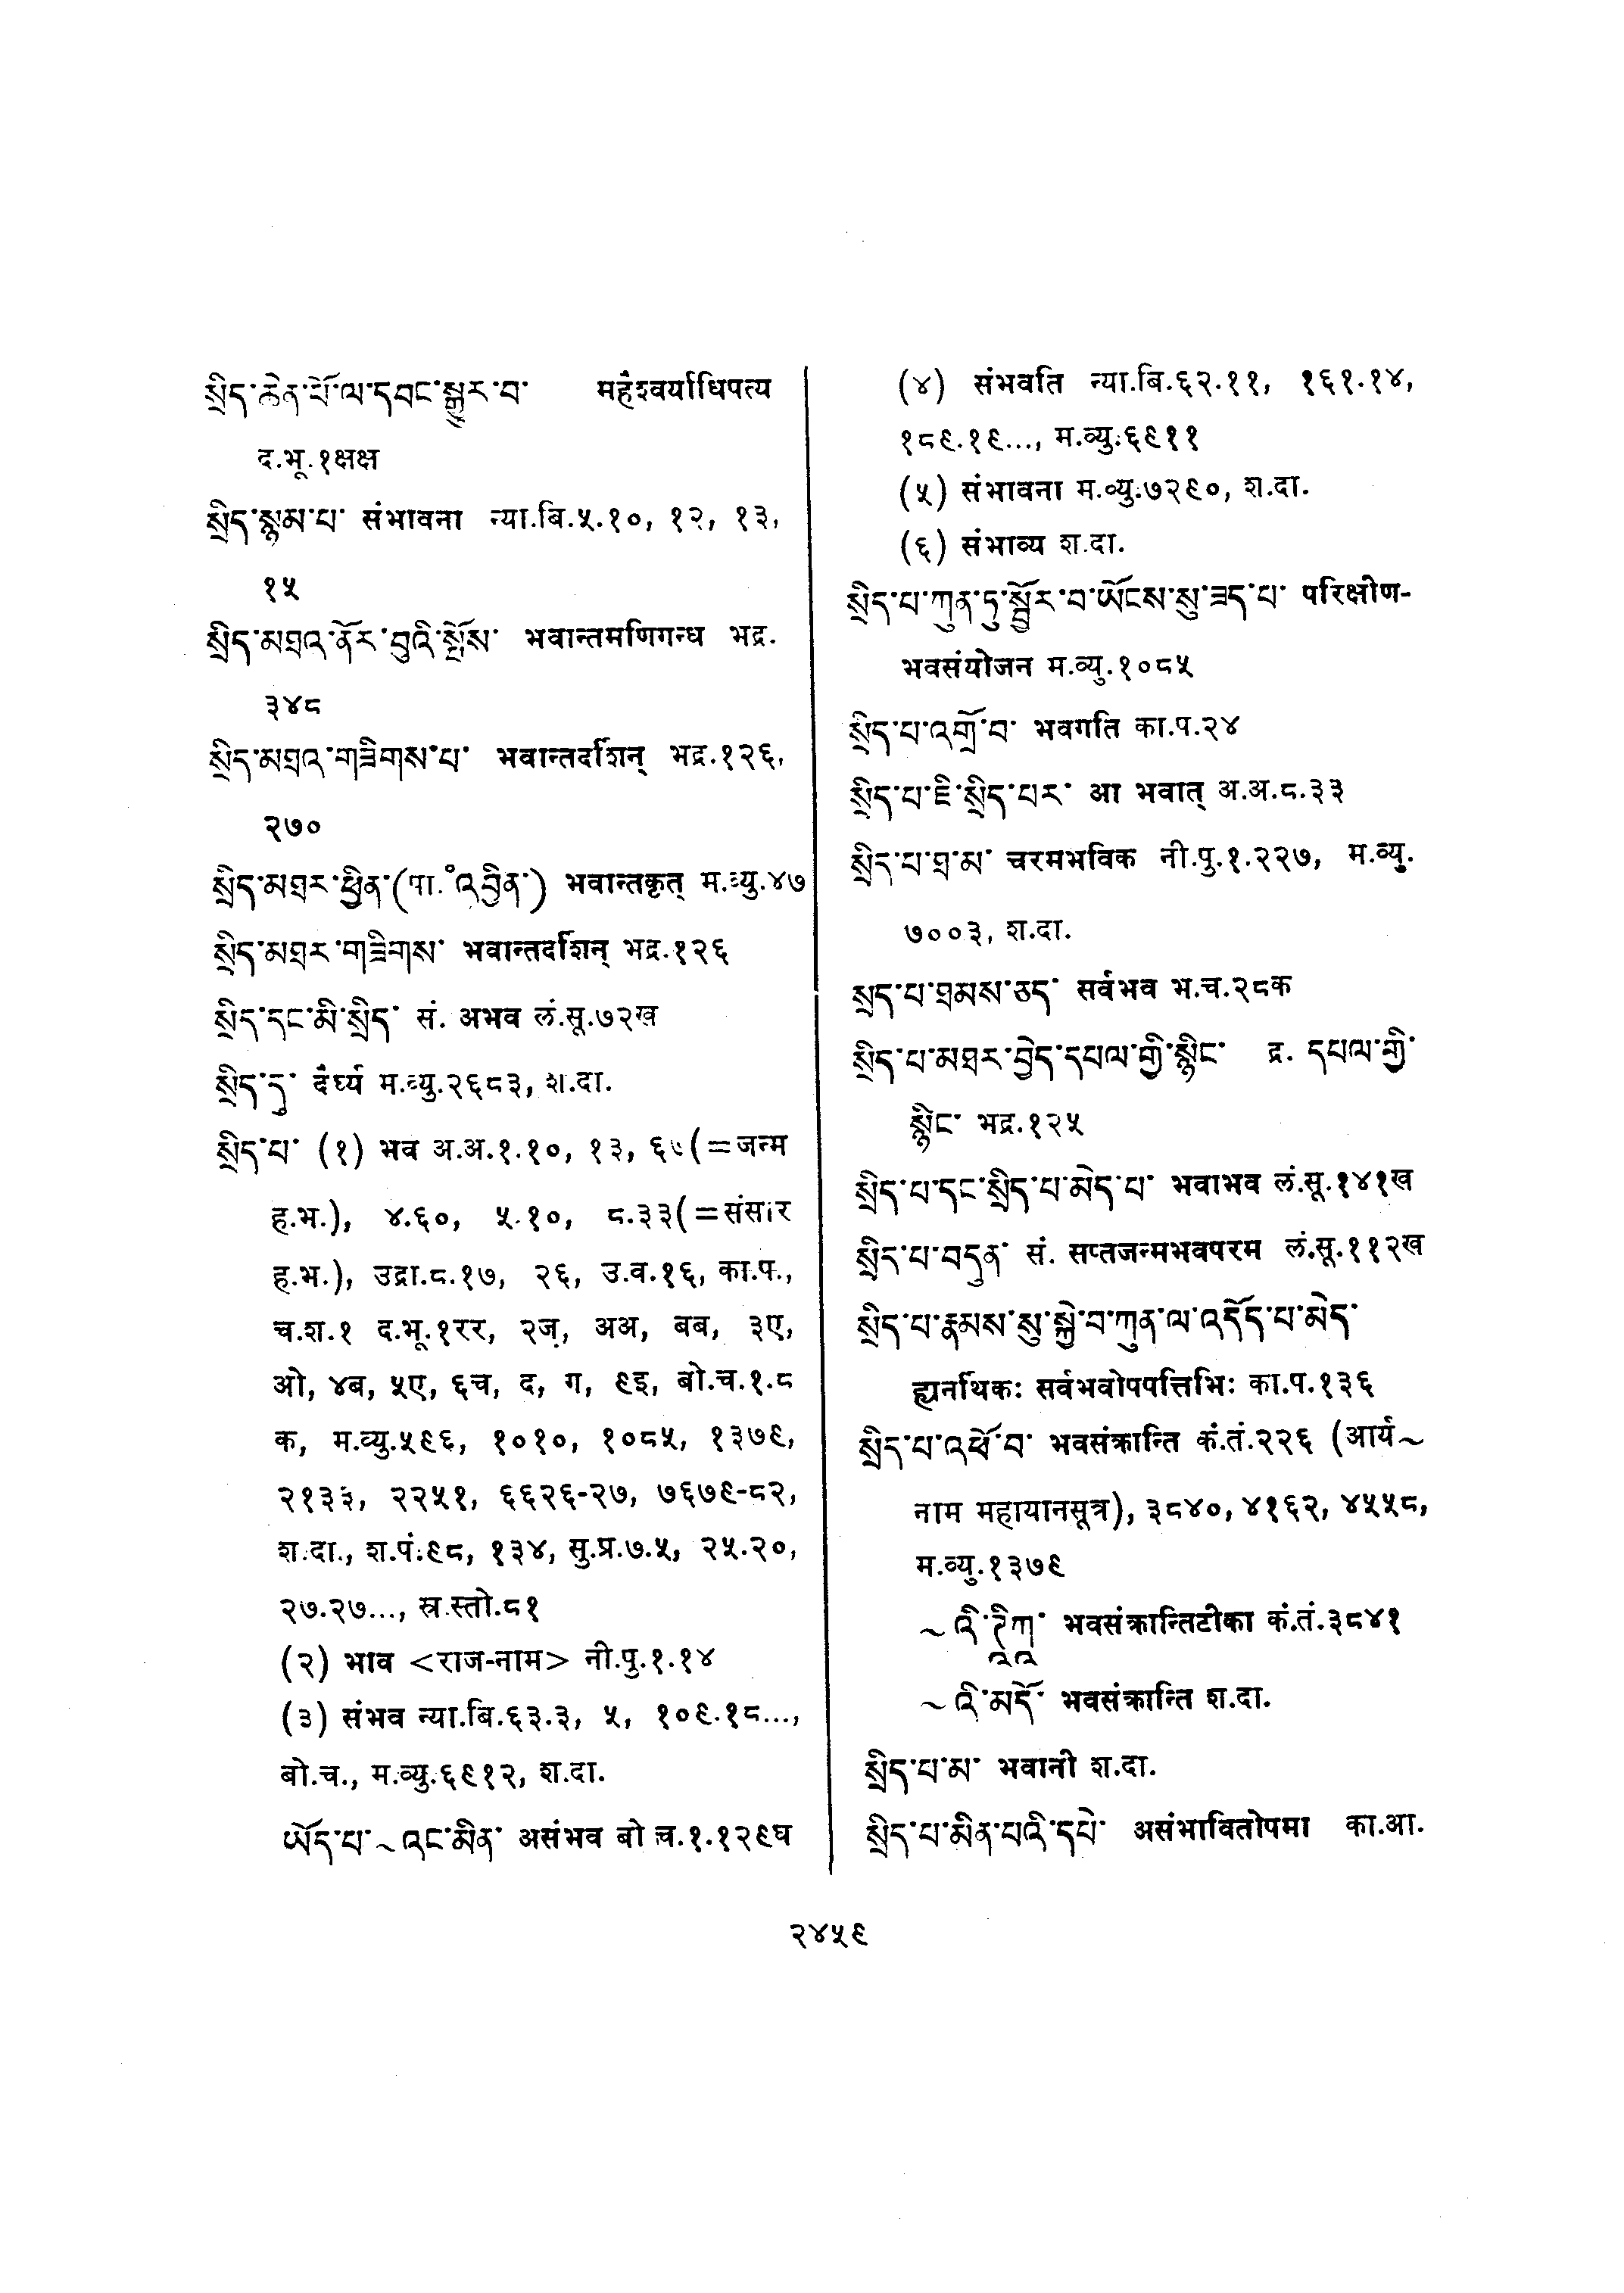 སྲིད་ཆེན་པོ་ལ་དབང་སྒྱུར་བ་ महैश्वर्याधिपत्य
द.भू.१क्षक्ष
སྲིད་སྙམ་པ་ संभावना न्या.बि.५.१०, १२, १३,
१५
སྲིད་མཐའ་ནོར་བུའི་སྤོས་ भवान्तमणिगन्ध भद्र.
३४८
སྲིད་མཐའ་གཟིགས་པ་ भवान्तर्दाशन् भद्र.१२६,
२७०
སྲིད་མཐར་ཕྱིན་(पा.°འབྱིན་) भवान्तकृत् म.व्यु.४७
སྲིད་མཐར་གཟིགས་ भवान्तर्दाशन् भद्र.१२६
སྲིད་དང་མི་སྲིད་ सं. अभव लं.सू.७२ख
སྲིད་དུ་ दैर्घ्य म.व्यु.२६८३, श.दा.
སྲིད་པ་ (१) भव अ.अ.१.१०, १३, ६७(=जन्म
ह.भ.), ४.६०, ५.१०, ८.३३(=संसार
ह.भ.), उद्रा.८.१७, २६, उ.व.१६, का.प.,
च.श.१ द.भू.१रर, २ज़, अअ, बब, ३ए,
ओ, ४ब, ५ए, ६च, द, ग, ९इ, बो.च.१.८
क, म.व्यु.५९६, १०१०, १०८५, १३७९,
२१३३, २२५१, ६६२६-२७, ७६७९-८२,
श.दा., श.पं.९८, १३४, सु.प्र.७.५, २५.२०,
२७.२७..., स्र.स्तो.८१
(२) भाव <राज-नाम> नी.पु.१.१४
(३) संभव न्या.बि.६३.३, ५, १०९.१८...,
बो.च., म.व्यु.६९१२, श.दा.
ཡོད་པ་~འང་མིན་ असंभव बो.च.१.१२९घ
(४) संभवति न्या.बि.६२.११, १६१.१४,
१८९.१९..., म.व्यु.६९११
(५) संभावना म.व्यु.७२९०, श.दा.
(६) संभाव्य श.दा.
སྲིད་པ་ཀུན་ཏུ་སྦྱོར་བ་ཡོངས་སུ་ཟད་པ་ परिक्षीण-
भवसंयोजन म.व्यु.१०८५
སྲིད་པ་འགྲོ་བ་ भवगति का.प.२४
སྲིད་པ་ཇི་སྲིད་པར་ आ भवात् अ.अ.८.३३
སྲིད་པ་ཐ་མ་ चरमभविक नी.पु.१.२२७, म.व्यु.
७००३, श.दा.
སྲད་པ་ཐམས་ཅད་ सर्वभव भ.च.२८क
སྲིད་པ་མཐར་བྱེད་དཔལ་གྱི་སྙིང་ द्र. དཔལ་གྱི་
སྙིང་ भद्र.१२५
སྲིད་པ་དང་སྲིད་པ་མེད་པ་ भवाभव लं.सू.१४१ख
སྲིད་པ་བདུན་ सं. सप्तजन्मभवपरम लं.सू.११२ख
སྲིད་པ་རྣམས་སུ་སྐྱེ་བ་ཀུན་ལ་འདོད་པ་མེད་
ह्यर्नाथकः सर्वभवोपपत्तिभिः का.प.१३६
སྲིད་པ་འཕོ་བ་ भवसंक्रान्ति कं.तं.२२६ (आर्य~
नाम महायानसूत्र), ३८४०, ४१६२, ४५५८,
म.व्यु.१३७९
~འི་ཊཱིཀཱ་ भवसंक्रान्तिटीका कं.तं.३८४१
~འི་མདོ་ भवसंक्रान्ति श.दा.
སྲིད་པ་མ་ भवानी श.दा.
སྲིད་པ་མིན་པའི་དཔེ་ असंभावितोपमा का.आ.
२४५९